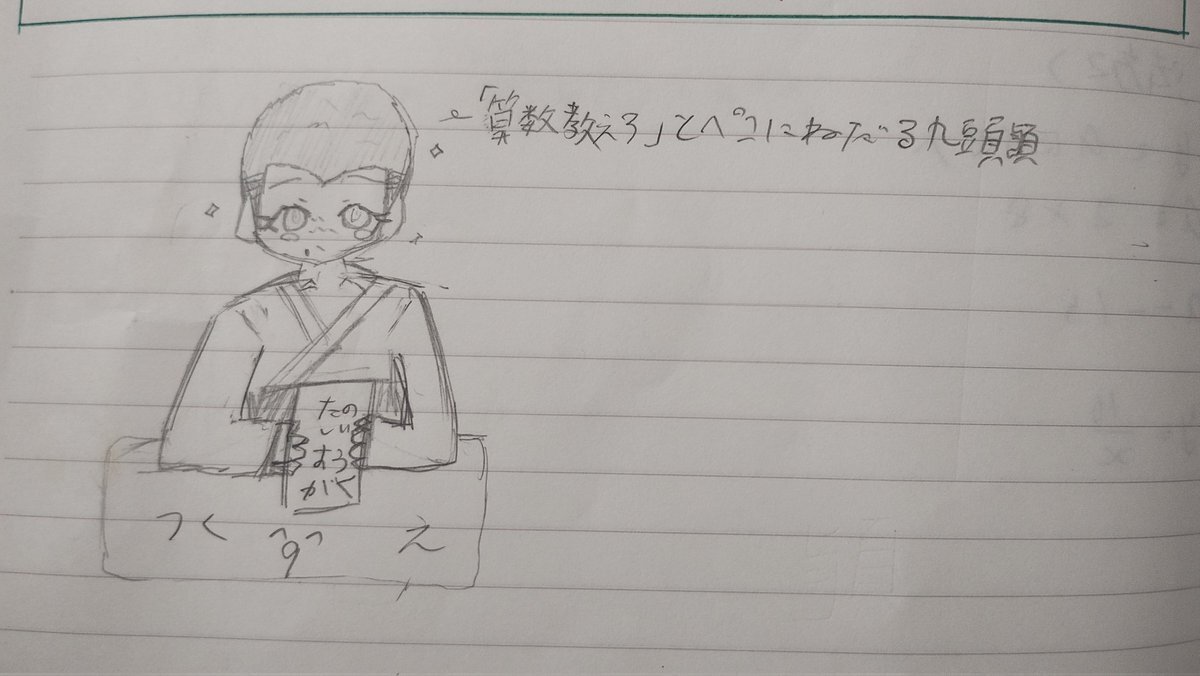 「算数教えろ」とペコにねだる九頭
たの
しい
すう
がく
つくえ